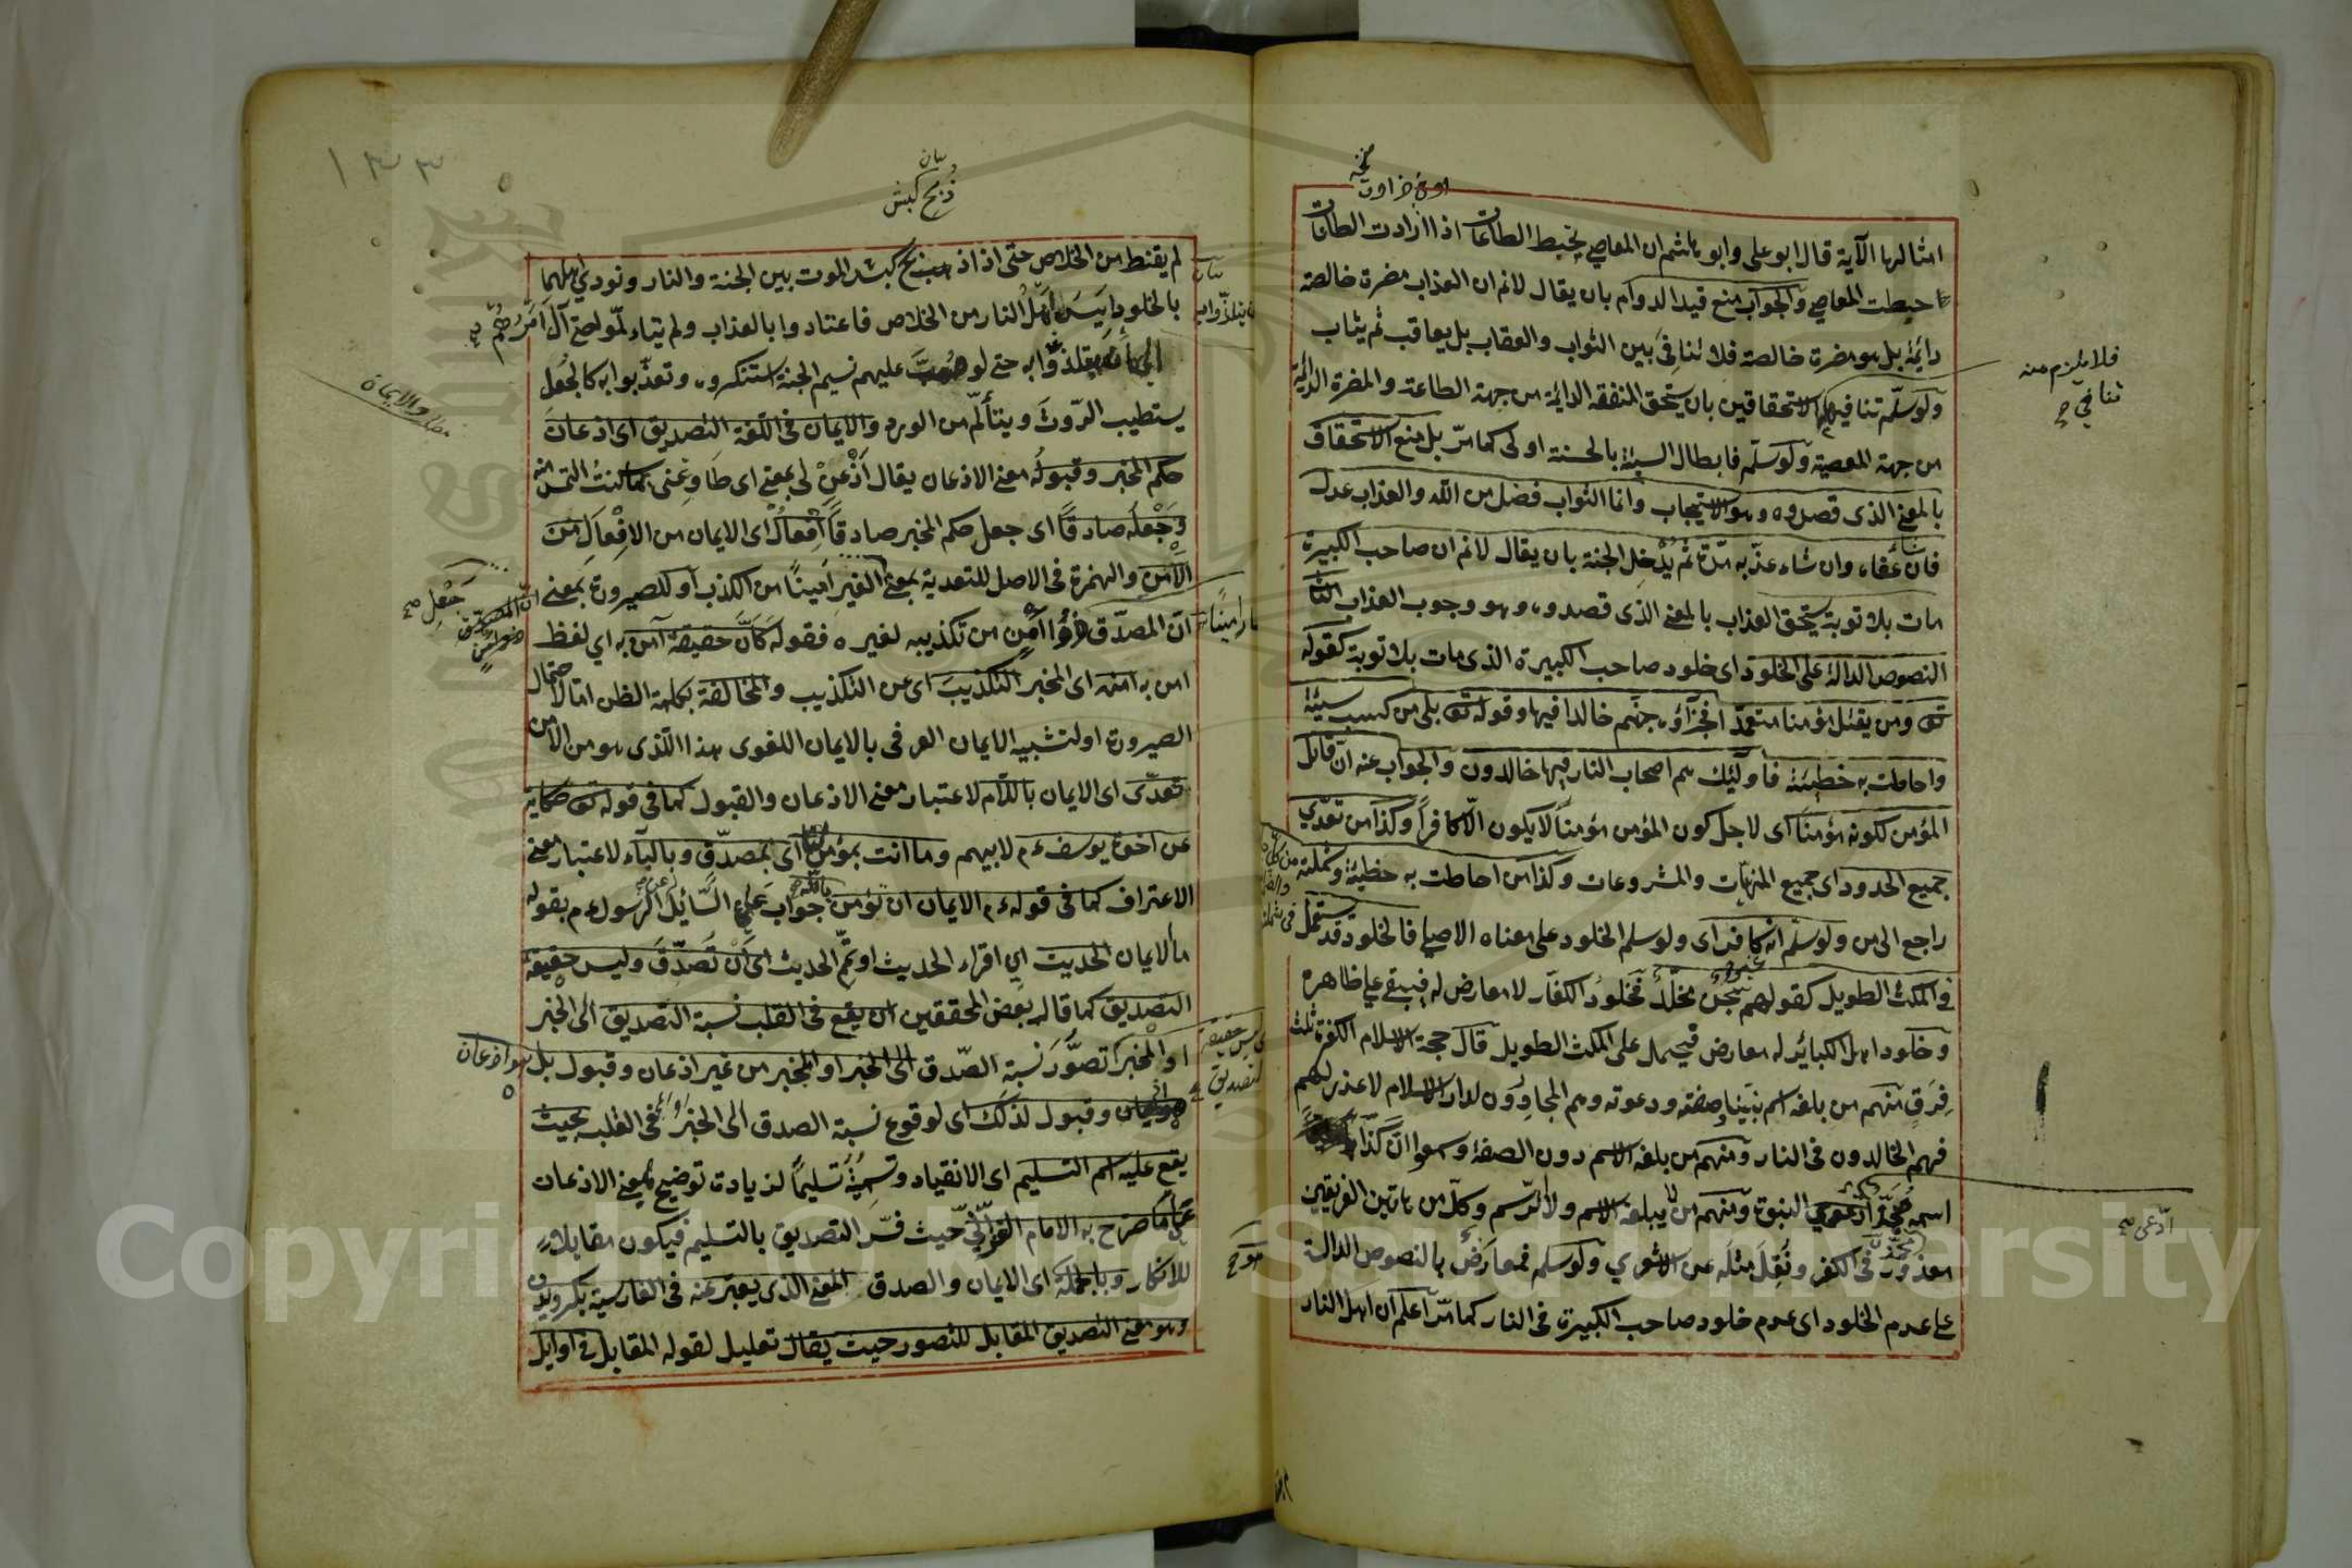 امثالها الآية قال ابو علی وابو هاشم ان المعاصی یحبط الطاعات اذا ازادت الطاعات
حبطت المعاصی والجواب منع قید الدوام بان یقال لانم ان العذاب مضرة خالصة
دائمة بل هو مضرة خالصة فلا تنافی بین الثواب والعقاب بل یعاقب ثم یثاب
ولو سلّم تنافیهما الاستحقاقین بان یستحق المنفقه الدائمة من جهة الطاعة والمضرة الدائمة
من جهة المعصیة ولو سلّم فابطال السیئة بالحسنة اولی كما مرّ بل منع الاستحقاق
بالمعنی الذی قصدوه وهو الاستیجاب وانما الثواب فضل من الله والعذاب عدل
فان شاء عفاء وان شاء عذّبه مدّة ثم یُدْخِل الجنة بان یقال لانم ان صاحب الكبیرة
مات بلا توبة یستحق العذاب بالمعنی الذی قصدوه وهو وجوب العذاب
النصوص الدالة علی الخلود ای خلود صاحب الكبیرة الذی مات بلا توبة كقوله
تع ومن یقتل مؤمنا متعمدا فجزآؤه جهنم خالدا فیها وقوله تع بلی من كسب سیئة
واحاطت به خطیئة فاولئك هم اصحاب النار فیها خالدون والجواب عنه انّ قاتل
المؤمن لكونه مؤمناً ای لاجل كون المؤمن مؤمناً لا یكون الّا كافراً وكذا من تعدّی
جمیع الحدود ای جمیع المنهیات والمشروعات وكذا من احاطت به خطیئة وشملته
راجع الی من ولو سلّم انه كافر ای ولو سلم الخلود علی معناه الاصلی فالخلود قد یستعمل
فی المكث الطویل كقولهم سجن مخلّدٌ فخلود الكفّار لا معارض له فیبقی علی ظاهره
وخلود اهل الكبائر له معارض فیحمل علی المكث الطویل قال حجة الاسلام الكفرة ثلث
فِرَقٍ منهم من بلغه اسم نبیّنا وصفته ودعوته وهم المجاورون لدار الاسلام لا عذر لهم
فهم الخالدون فی النار ومنهم من بلغه الاسم دون الصفة وسمعوا انّ كذّابا
اسمه محمّد ادّعی النبوة ومنهم من لا یبلغه الاسم ولا الرّسم وكلّ من هاتین الفریقین
معذور فی الكفر ونُقِلَ مثلَه عن الاشعری ولو سلم فمعارَضٌ بالنصوص الدالة
علی عدم الخلود ای عدم خلود صاحب الكبیرة فی النار كما مرّ اعلم ان اهل النار
فلا یلزم منه
تنافی صح
ادّعی صح
١٣٣
بیان
ذُبح كبش
لم یقنط من الخلاص حتی اذ اذ ذبح كبش الموت بین الجنة والنار ونودی اهلهما
بالخلود وایَسَ اهل النار من الخلاص فاعتادوا بالعذاب ولم یتألموا حتی آل امرهم صح
الی ان یتلذّوا به حتی لو هبّت علیهم نسیم الجنة استنكروه وتعذّبوا به كالجُعَل
یستطیب الرّوثَ ویتألّم من الورد والایمان فی اللغة التصدیق ای اذعان
حكم المخبر وقبوله معنی الاذعان یقال اَذْعَنْ لی بمعنی ای طاوعنی بما كنت التمس منه
وجَعْلُه صادقاً ای جعل حكم المخبر صادقاً اِفعالٌ ای الایمان من الافعال من
الأمن والهمزة فی الاصل للتعدیة بمعنی الغیر امیناً من الكذب او للصیرورة بمعنی
انّ المصدّق امن من تكذیبه لغیره فقوله كانّ حقیقة آمن به ای لفظ
امن به امنه ای المخبر التكذیب ای عن التكذیب والمخالفة بكلمة الظن امّا لاحتمال
الصیرورة او لتشبیه الایمان العرفی بالایمان اللغوی هذا الذی هو من الامن
تعدّی ای الایمان باللام لاعتبار معنی الاذعان والقبول كما فی قوله تع حكایة
عن اخوة یوسف ءم لابیهم وما انت بمؤمن لنا ای بمصدّق وبالباء لاعتبار معنی
الاعتراف كما فی قوله ءم الایمان ان تؤمن بالله جواب علی السّائل الرسول ءم بقوله
ما الایمان الحدیث ای اقراء الحدیث او تمّ الحدیث ای اَنْ تُصَدِّقَ ولیس حقیقة
التصدیق كما قال بعض المحققین ان یقع فی القلب نسبة التصدیق الی الخبر
او المخبر تصوُّر نسبة الصّدق الی الخبر او المخبر من غیر اذعان وقبول بل هو اذعان
وقبول لذلك ای لوقوع نسبة الصدق الی الخبر فی القلب بحیث
یقع علیه اسم التسلیم ای الانقیاد وتسمیته تسلیماً لزیادة توضیح لمعنی الاذعان
علی ما صرّح به الامام الغزالی حیث فسّر التصدیق بالتسلیم فیكون مقابلا
للانكار وبالجملة ای الایمان والصدق المعنی الذی یعبّر عنه فی الفارسیة بكرویدن
وهو معنی التصدیق المقابل للتصور حیث یقال تعلیل لقوله المقابل فی اوایل
جَعْلِ صح
لیس حقیقة
التصدیق
Copyright © King Saud University